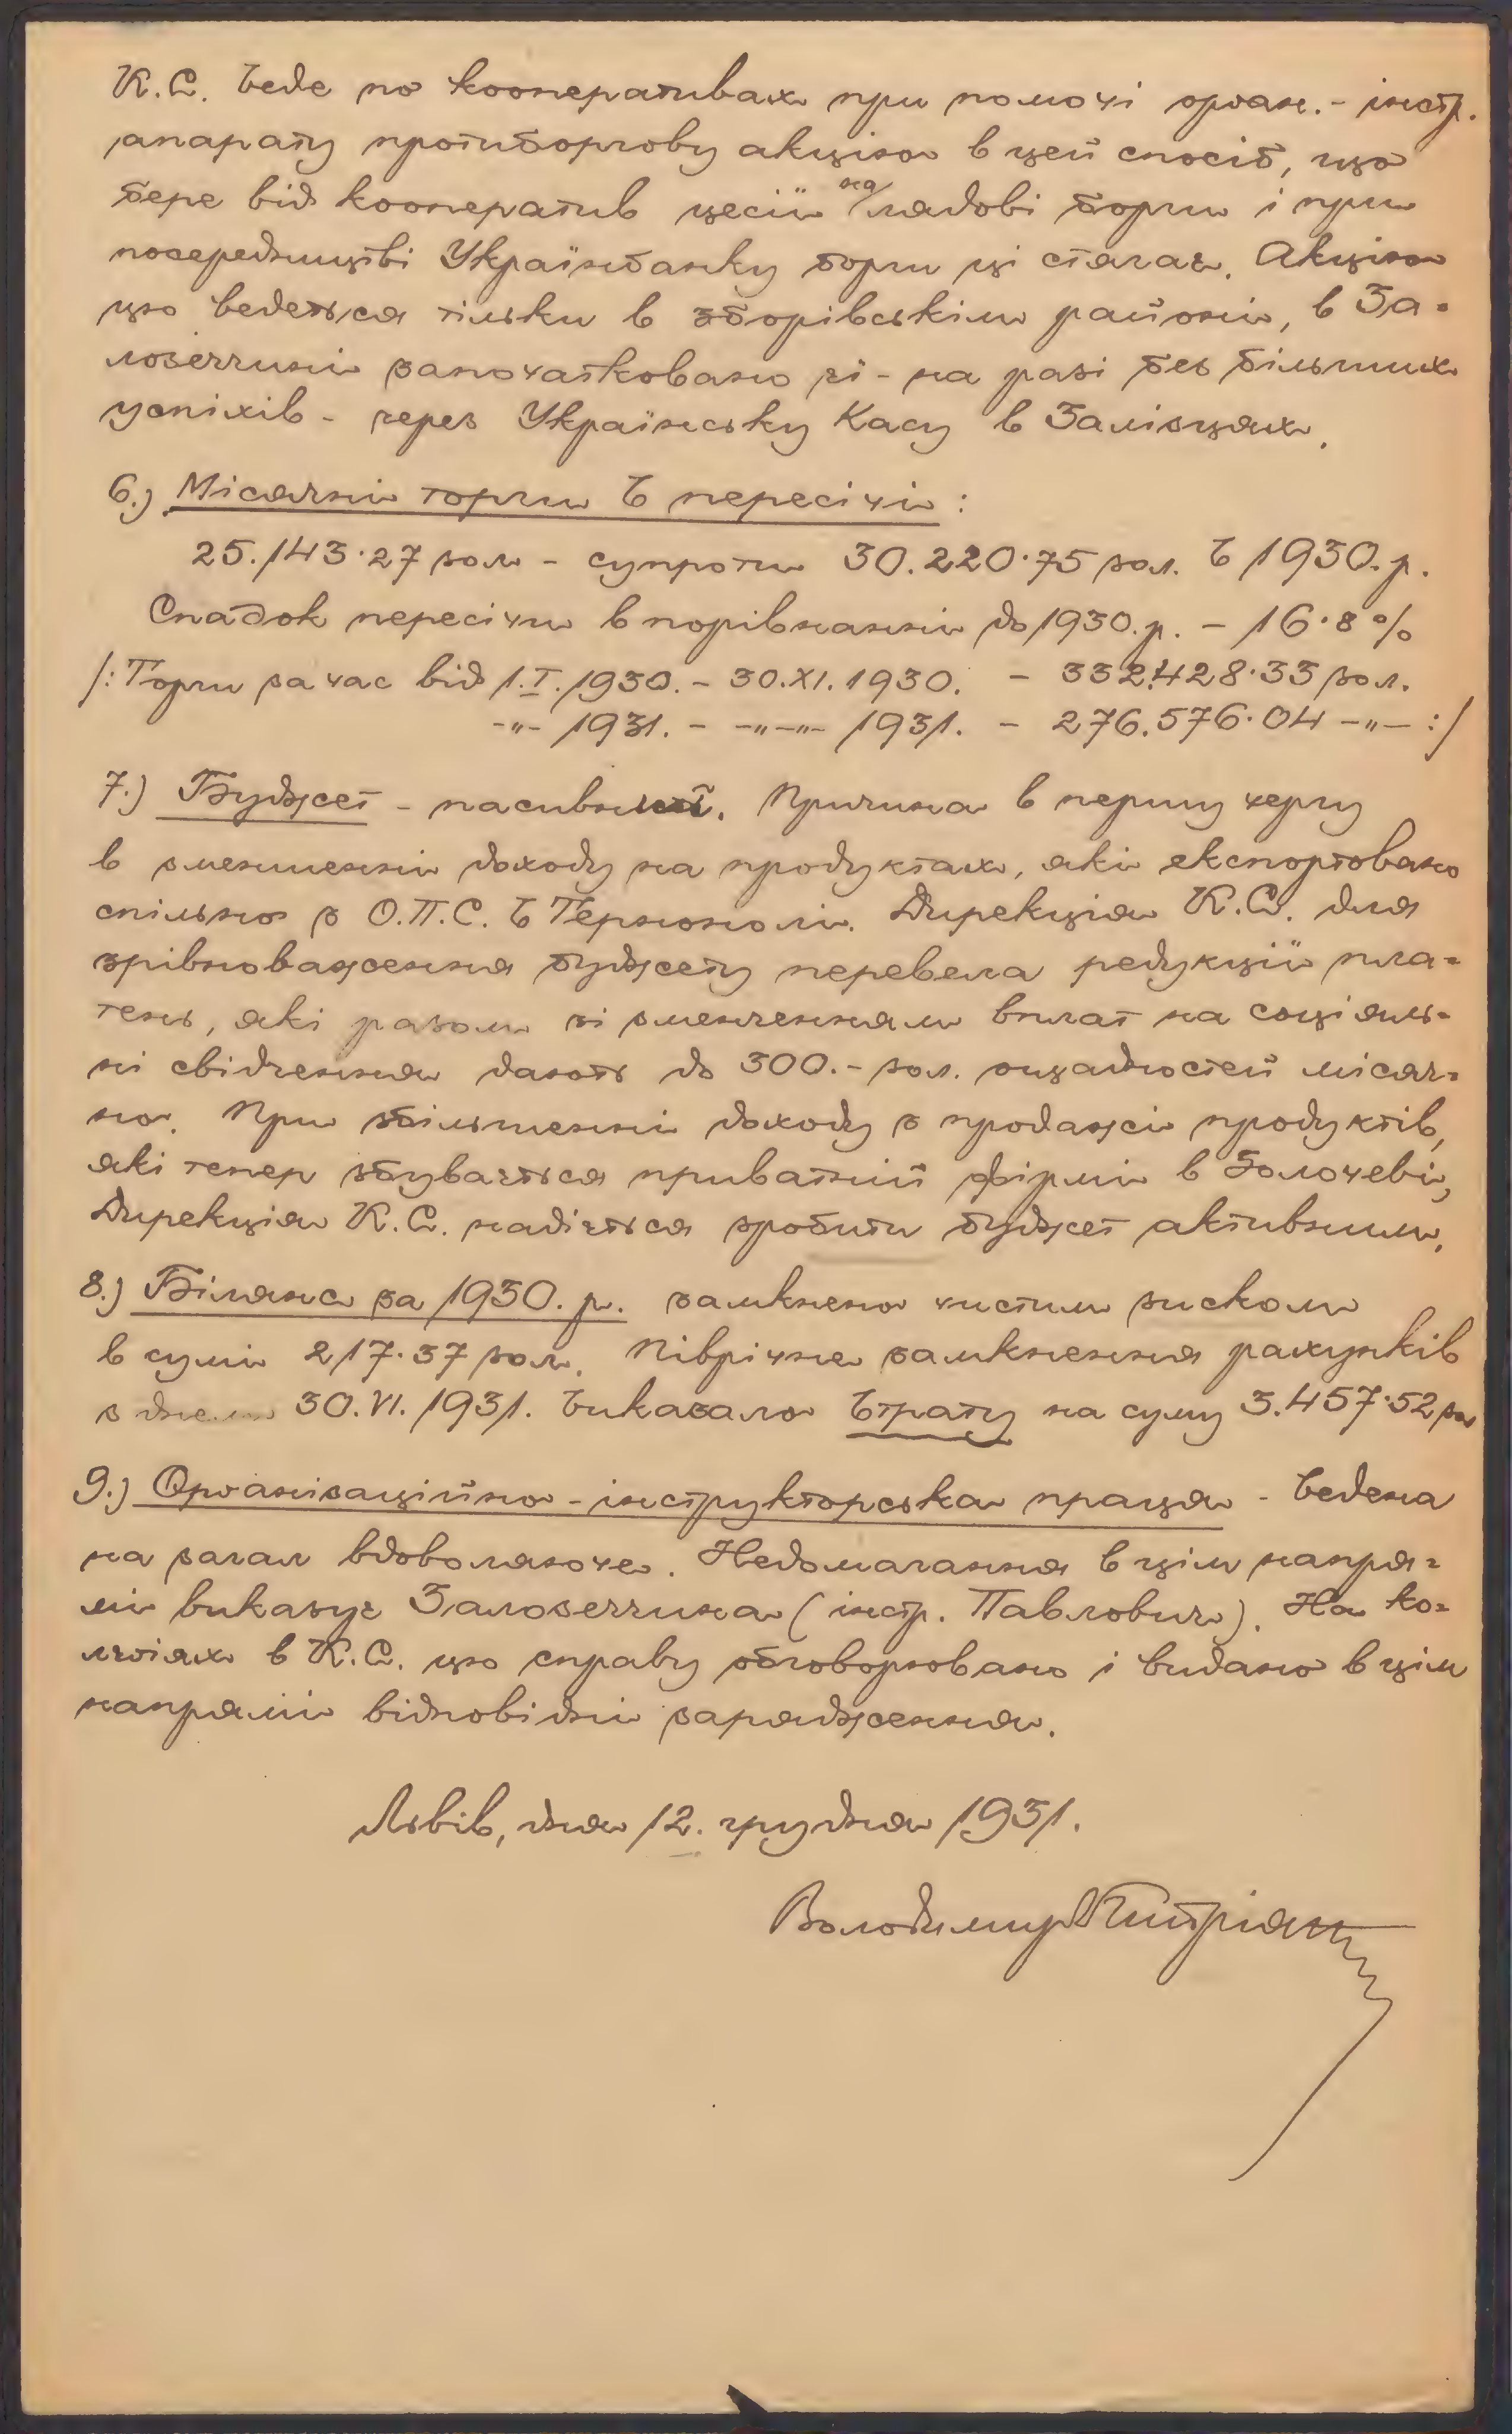 К.С. веде по кооперативах при помочі орган.- інстр.
апарату протиборгову акцію в цей спосіб, що
бере від кооператив цесії на лядові борги і при
посередництві Українбанку борги ці стягає. Акцію
цю ведеться тільки в зборівськім районі, в За-
лозеччині започатковано її - на разі без більших
успіхів - через Українську Касу в Залізцях.
6.) Місячні торги в пересічі :
25.143·27 зол - супроти 30.220·75 зол. в 1930. р.
Спадок пересічи в порівнанні до 1930. р. - 16·8 %
/: Торги за час від 1.I.1930. - 30.XI.1930. - 332.428·33 зол.
-"- 1931. - -"-"- 1931. - 276.576·04 -"- :/
7.) Буджет - пасивний. Причина в першу чергу
в зменшенні доходу на продуктах, які експортовано
спільно з О.П.С. в Тернополі. Дирекція К.С. для
зрівноваження буджету перевела редукції пла-
тень, які разом зі зменченням вплат на соціяль-
ні свідчення дають до 300.- зол. ощадностей місяч-
но. При збільшенні доходу з продажі продуктів,
які тепер збувається приватній фірмі в Золочеві,
Дирекція К.С. надіється зробити буджет активним.
8.) Білянс за 1930. р. замкнено чистим зиском
в сумі 217·37 зол. Піврічне замкнення рахунків
з днем 30.VI.1931. виказало втрату на суму 3.457·52 зол
9.) Організаційно - інструкторська праця - ведена
на загал вдоволяюче. Недомагання в цім напря-
мі виказує Залозеччина (інстр. Павлович). На ко-
легіях в К.С. цю справу обговорювано і видано в цім
напрямі відповідні зарядження.
Львів, дня 12. грудня 1931.
Володимир